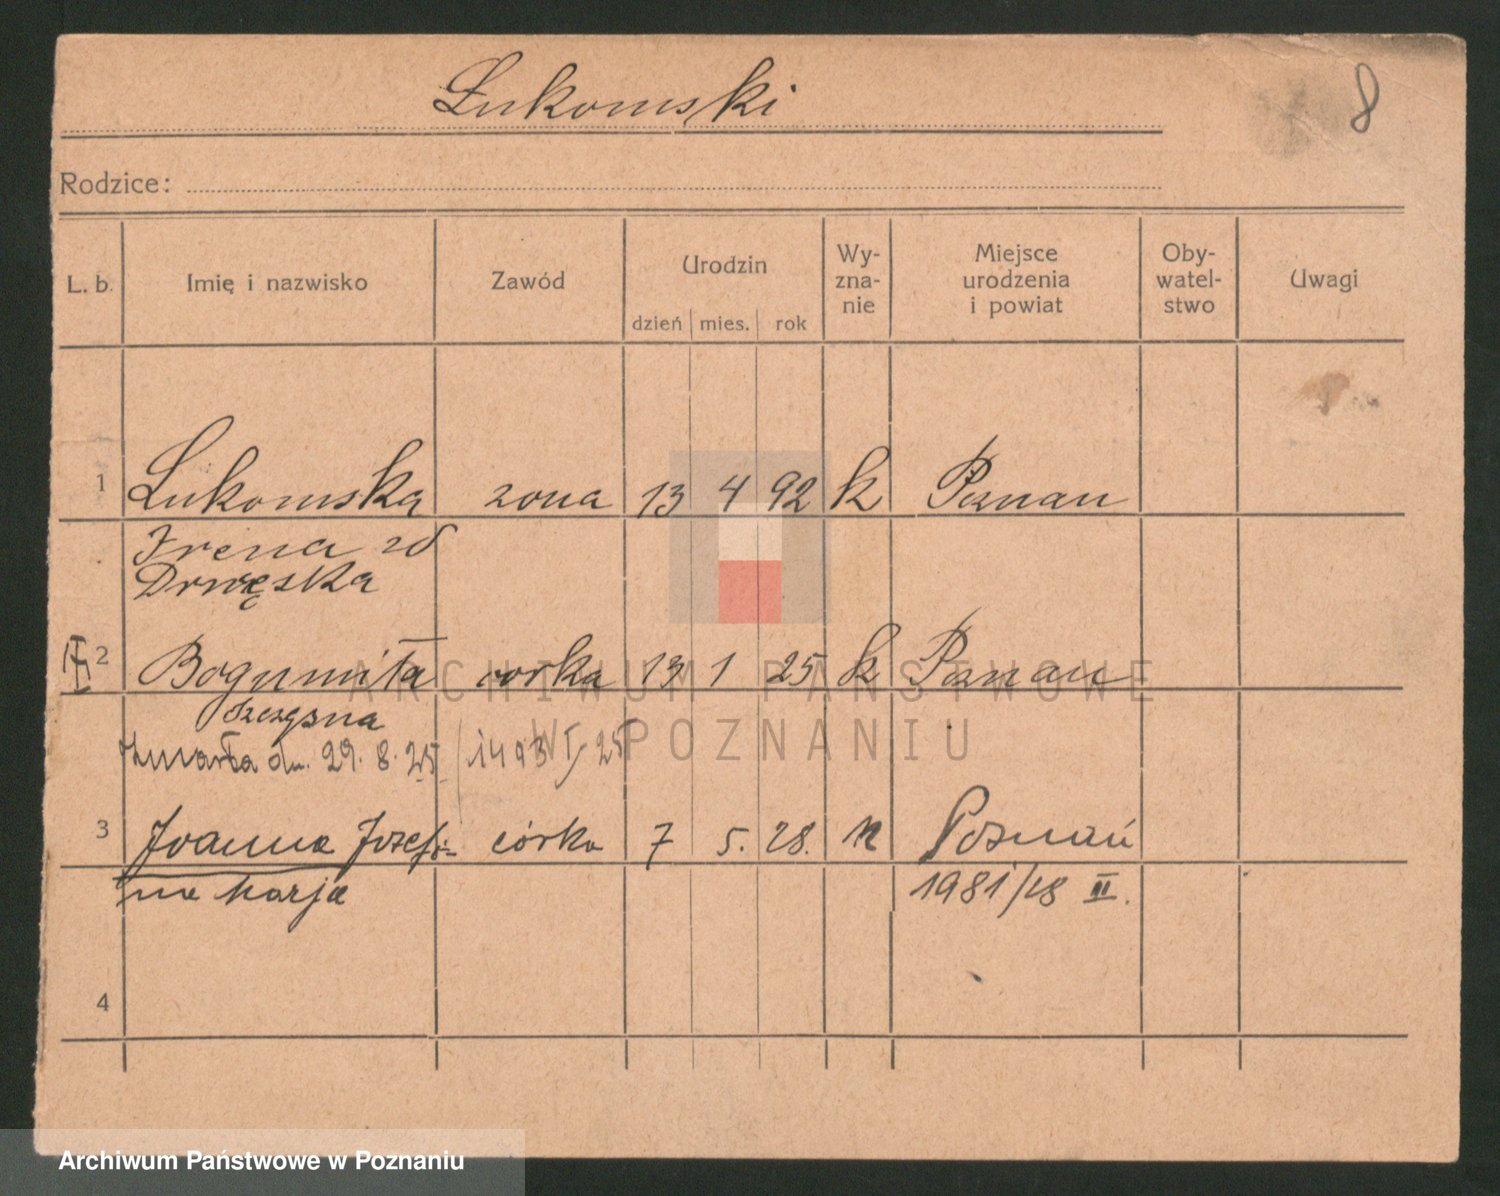 Łukomski
8
Rodzice:
L. b. Imię i nazwisko Zawód Urodzin dzień mies. rok Wy-zna-nie Miejsce urodzenia i powiat Oby-watel-stwo Uwagi
1 Łukomska zona 13 4 92 k Poznan
Irena zd
Drwęska
2 Bogumiła corka 13 1 25 k Poznan
Szczęsna
zmarła dn. 29. 8. 25 1493 I/25
3 Joanna Józefi- córka 7 5. 28. k Poznań
na Marja 1981/28 II.
4
ARCHIWUM PAŃSTWOWE
W POZNANIU
Archiwum Państwowe w Poznaniu